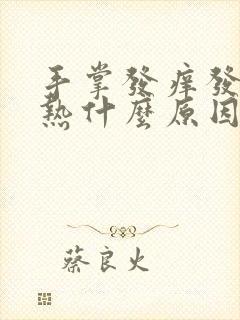 手掌發痒發
熱什麼原因
蔡良火